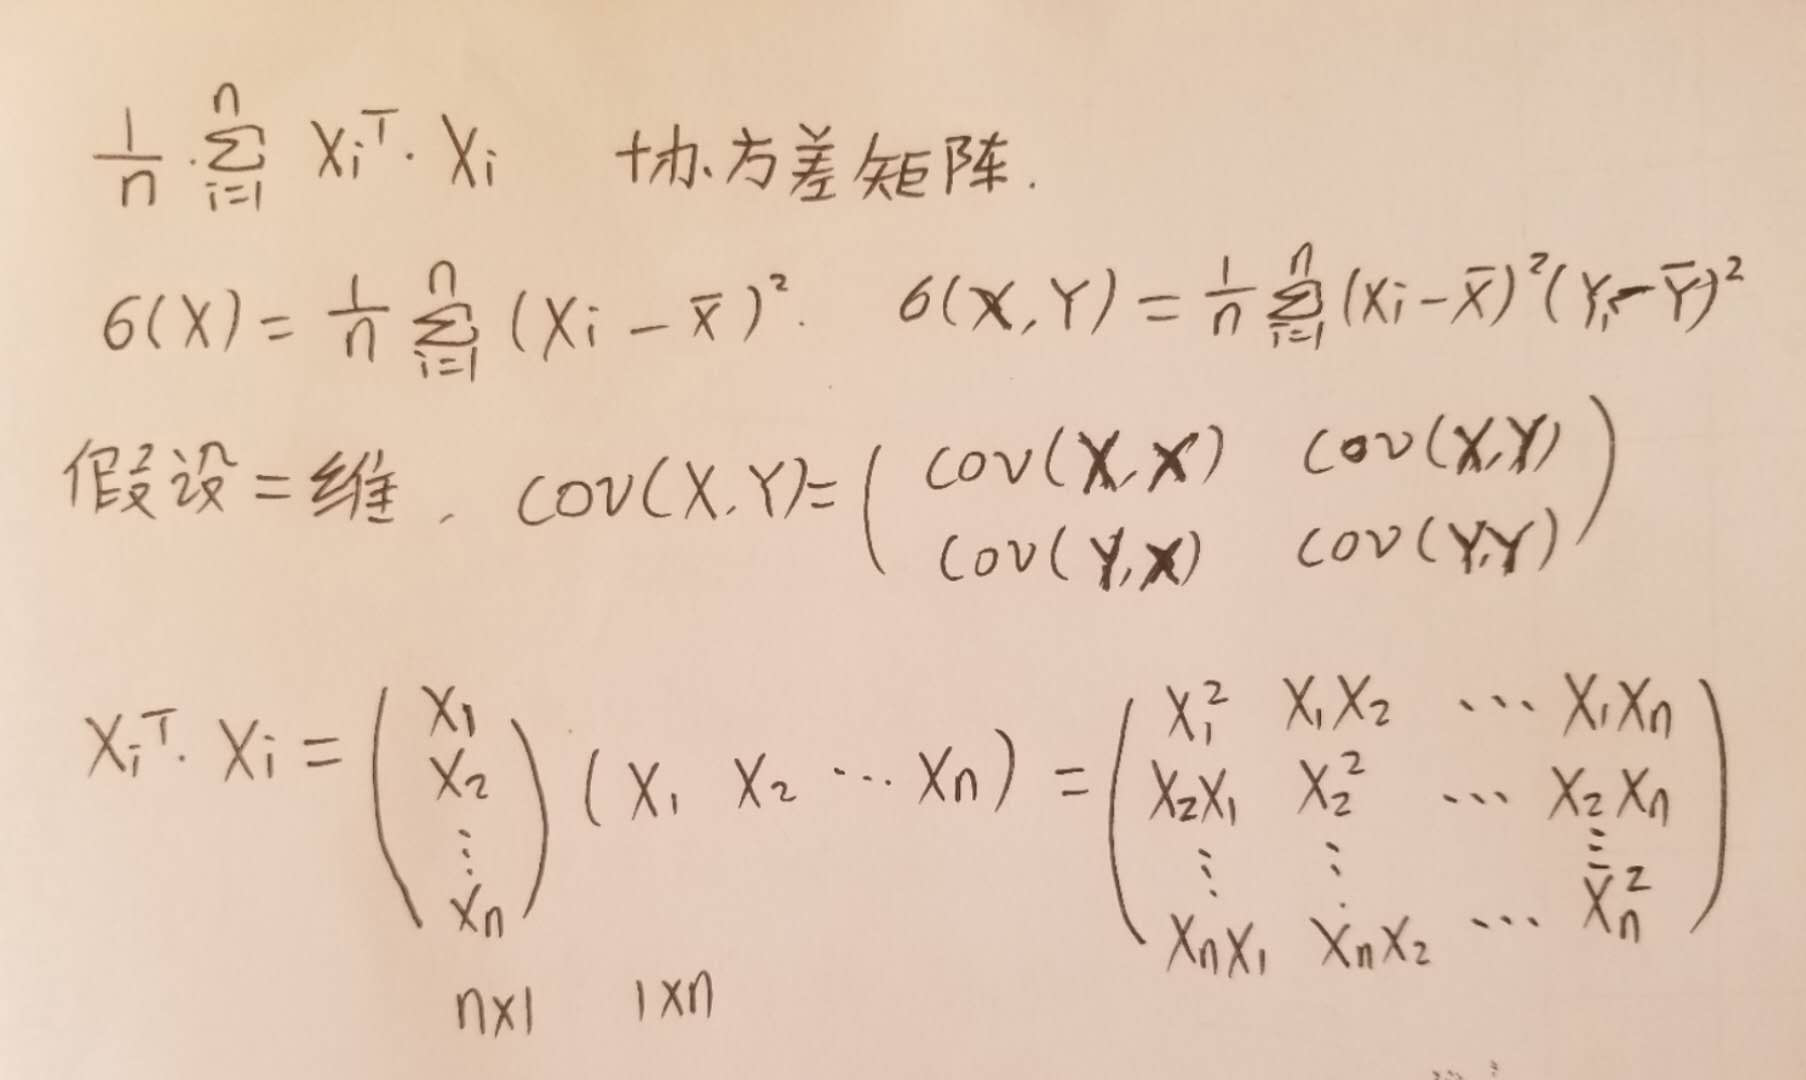 1/n · Σ_{i=1}^{n} Xi^T · Xi 协方差矩阵.
6(X) = 1/n Σ_{i=1}^{n} (Xi − X̄)². 6(X,Y) = 1/n Σ_{i=1}^{n} (Xi − X̄)²(Yi − Ȳ)²
假设二维. cov(X,Y)= ( cov(X,X) cov(X,Y)
cov(Y,X) cov(Y,Y) )
Xi^T · Xi = ( X1 X2 ⋮ Xn ) ( X1 X2 ⋯ Xn ) = ( X1² X1X2 ⋯ X1Xn
X2X1 X2² ⋯ X2Xn
⋮ ⋮ ⋮
XnX1 XnX2 ⋯ Xn² )
n×1 1×n